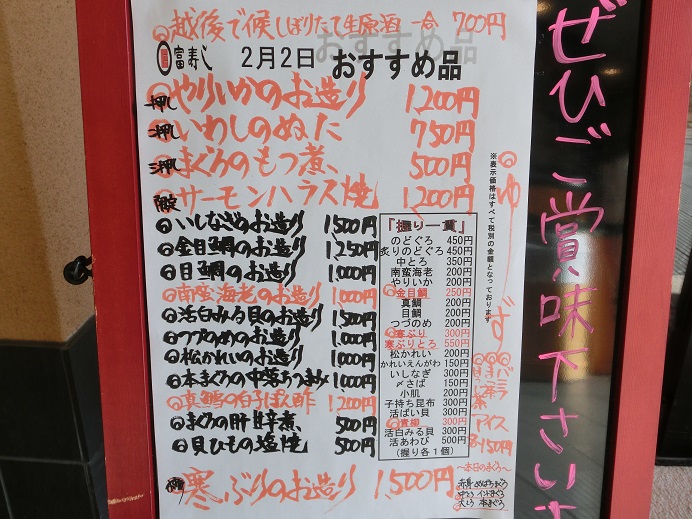 越後で候しぼりたて生原酒 一合 700円
富寿し 2月2日 おすすめ品
一押し やりいかのお造り 1,200円
二押し いわしのぬた 750円
三押し まぐろのもつ煮 500円
限定 サーモンハラス焼 1,200円
いしなぎのお造り 1,500円
金目鯛のお造り 1,250円
目鯛のお造り 1,000円
南蛮海老のお造り 1,000円
活白みる貝のお造り 1,500円
つづのめのお造り 1,000円
松かれいのお造り 1,000円
本まぐろの中落ちつまみ 1,000円
真鱈の白子ぽん酢 1,200円
まぐろの肝甘辛煮 500円
貝ひもの塩焼 500円
寒ぶりのお造り 1,500円
「握り一貫」
のどぐろ 450円
炙りのどぐろ 450円
中とろ 350円
南蛮海老 200円
やりいか 200円
金目鯛 250円
真鯛 200円
目鯛 200円
つづのめ 200円
寒ぶり 300円
寒ぶりとろ 550円
松かれい 200円
かれいえんがわ 150円
いしなぎ 300円
〆さば 150円
小肌 200円
子持ち昆布 300円
活ばい貝 200円
貴柳 300円
活白みる貝 300円
活あわび 500円
(握り各1個)
※表示価格はすべて税別の金額となっております
ゆず
バニラ
アイス
各150円
〜本日のまぐろ〜
赤身 めばちまぐろ
中とろ インドまぐろ
大とろ 本まぐろ
ぜひご賞味下さいま